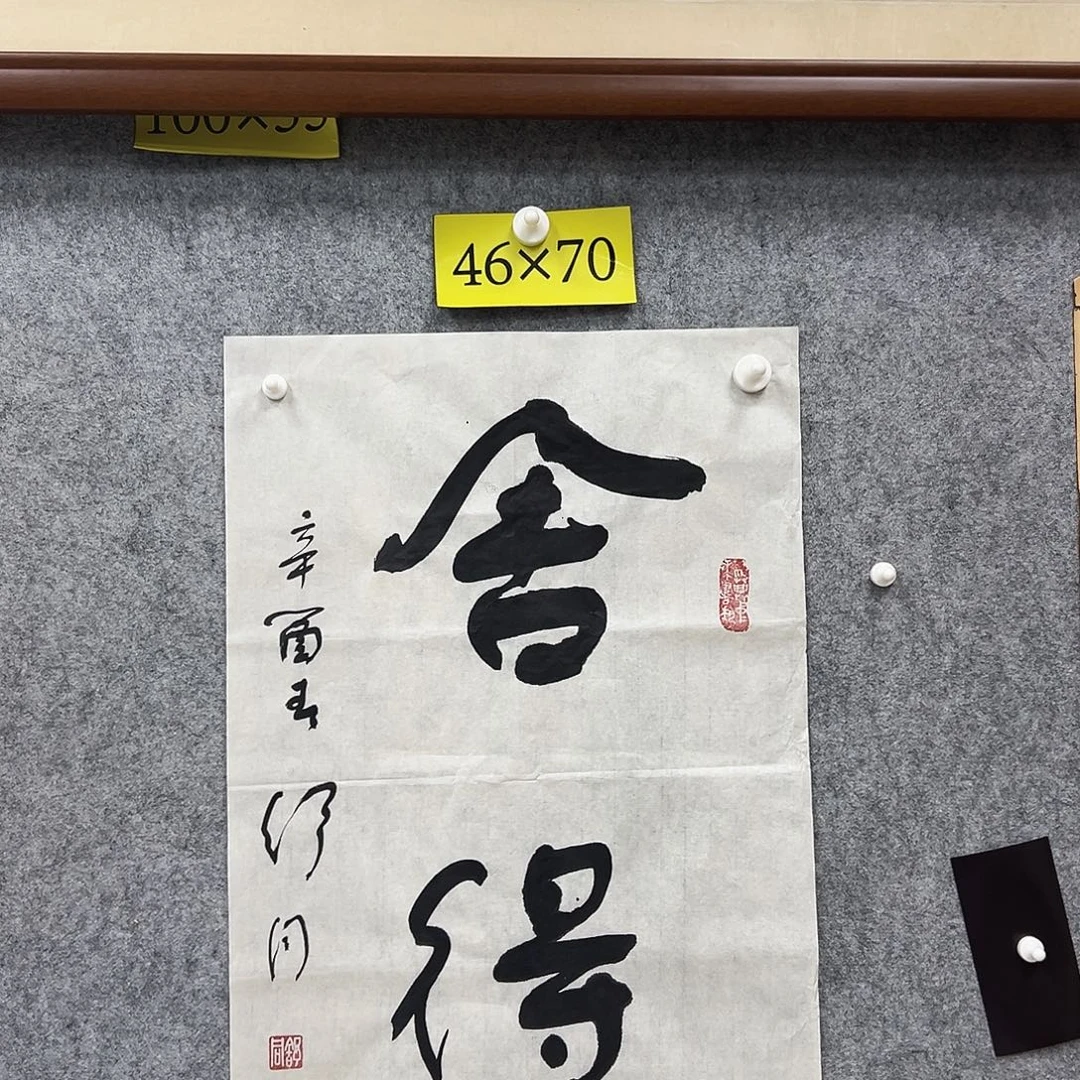 100×55
46×70
舍得
辛酉春 舒同
舒同